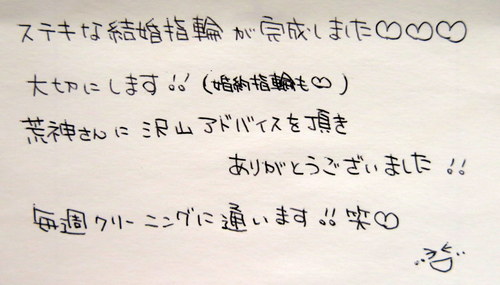 ステキな結婚指輪が完成しました♡♡♡
大切にします!!(婚約指輪も♡)
荒神さんに沢山アドバイスを頂き
ありがとうございました!!
毎週クリーニングに通います!!笑♡